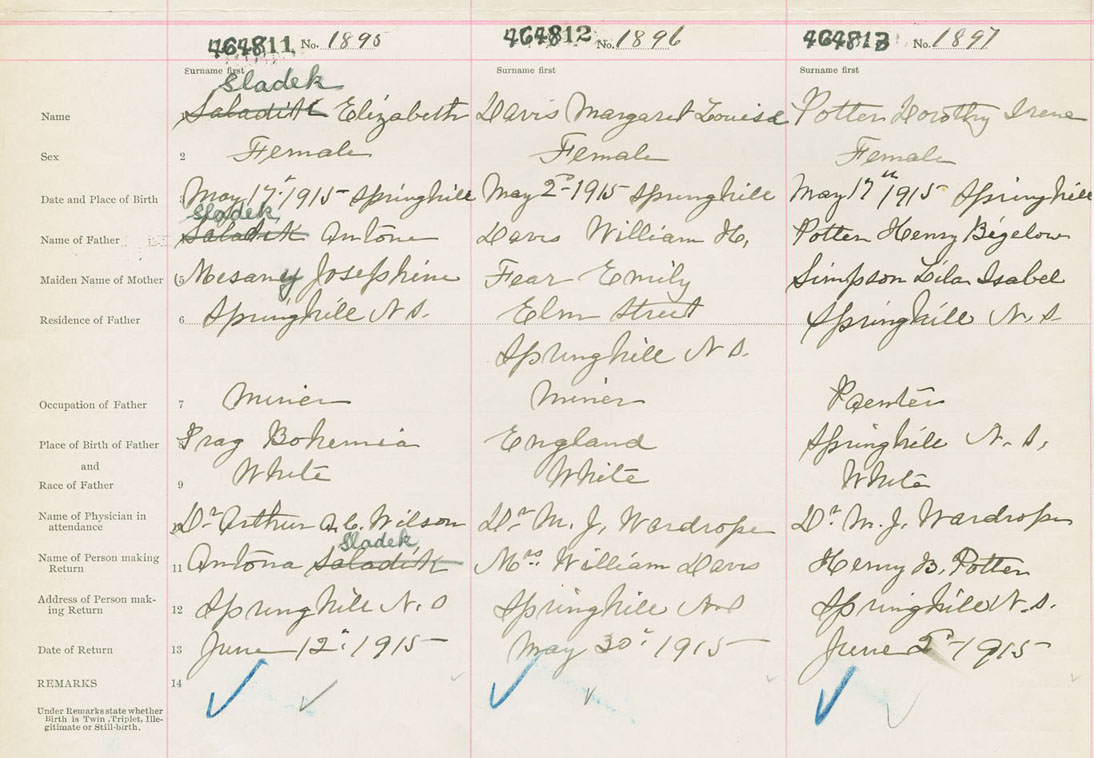 464811 No. 1895 464812 No. 1896 464813 No. 1897
Surname first Surname first Surname first
Sladek
Name 1 Saladik Elizabeth Davis Margaret Louisa Potter Dorothy Irene
Sex 2 Female Female Female
Date and Place of Birth 3 May 17th 1915 Springhill May 2d 1915 Springhill May 17th 1915 Springhill
Sladek
Name of Father Saladik Antone Davis William H. Potter Henry Bigelow
Maiden Name of Mother 5 Mesany Josephine Fear Emily Simpson Lila Isabel
Residence of Father 6 Springhill N.S. Elm Street Springhill N.S.
Springhill N.S.
Occupation of Father 7 Miner Miner Paenter
Place of Birth of Father 8 Prag Bohemia England Springhill N.S.
and
Race of Father 9 White White White
Name of Physician in
attendance 10 Dr Arthur A.C. Wilson Dr M. J. Wardrope Dr M. J. Wardrope
Sladek
Name of Person making
Return 11 Antona Saladik Mrs William Davis Henry B. Potter
Address of Person mak-
ing Return 12 Springhill N.S Springhill N.S Springhill N.S.
Date of Return 13 June 12th 1915 May 30th 1915 June 2d 1915
REMARKS 14
Under Remarks state whether
Birth is Twin, Triplet, Ille-
gitimate or Still-birth.